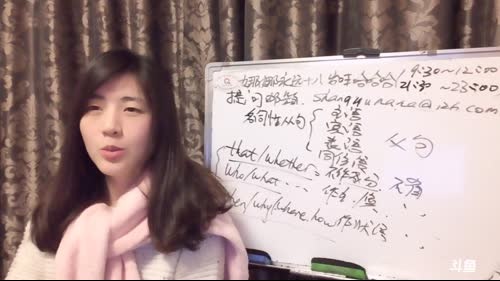 娜娜永远十八 哈哈哈哈 / 9:30~12:00
21:30~23:00
提问邮箱. shangyunana@126.com
名词性从句 { 主语
宾语
表语
同位语
从句
that/whether = 不作成分
who/what... 作主/宾
when/why/where, how 作状语
斗鱼